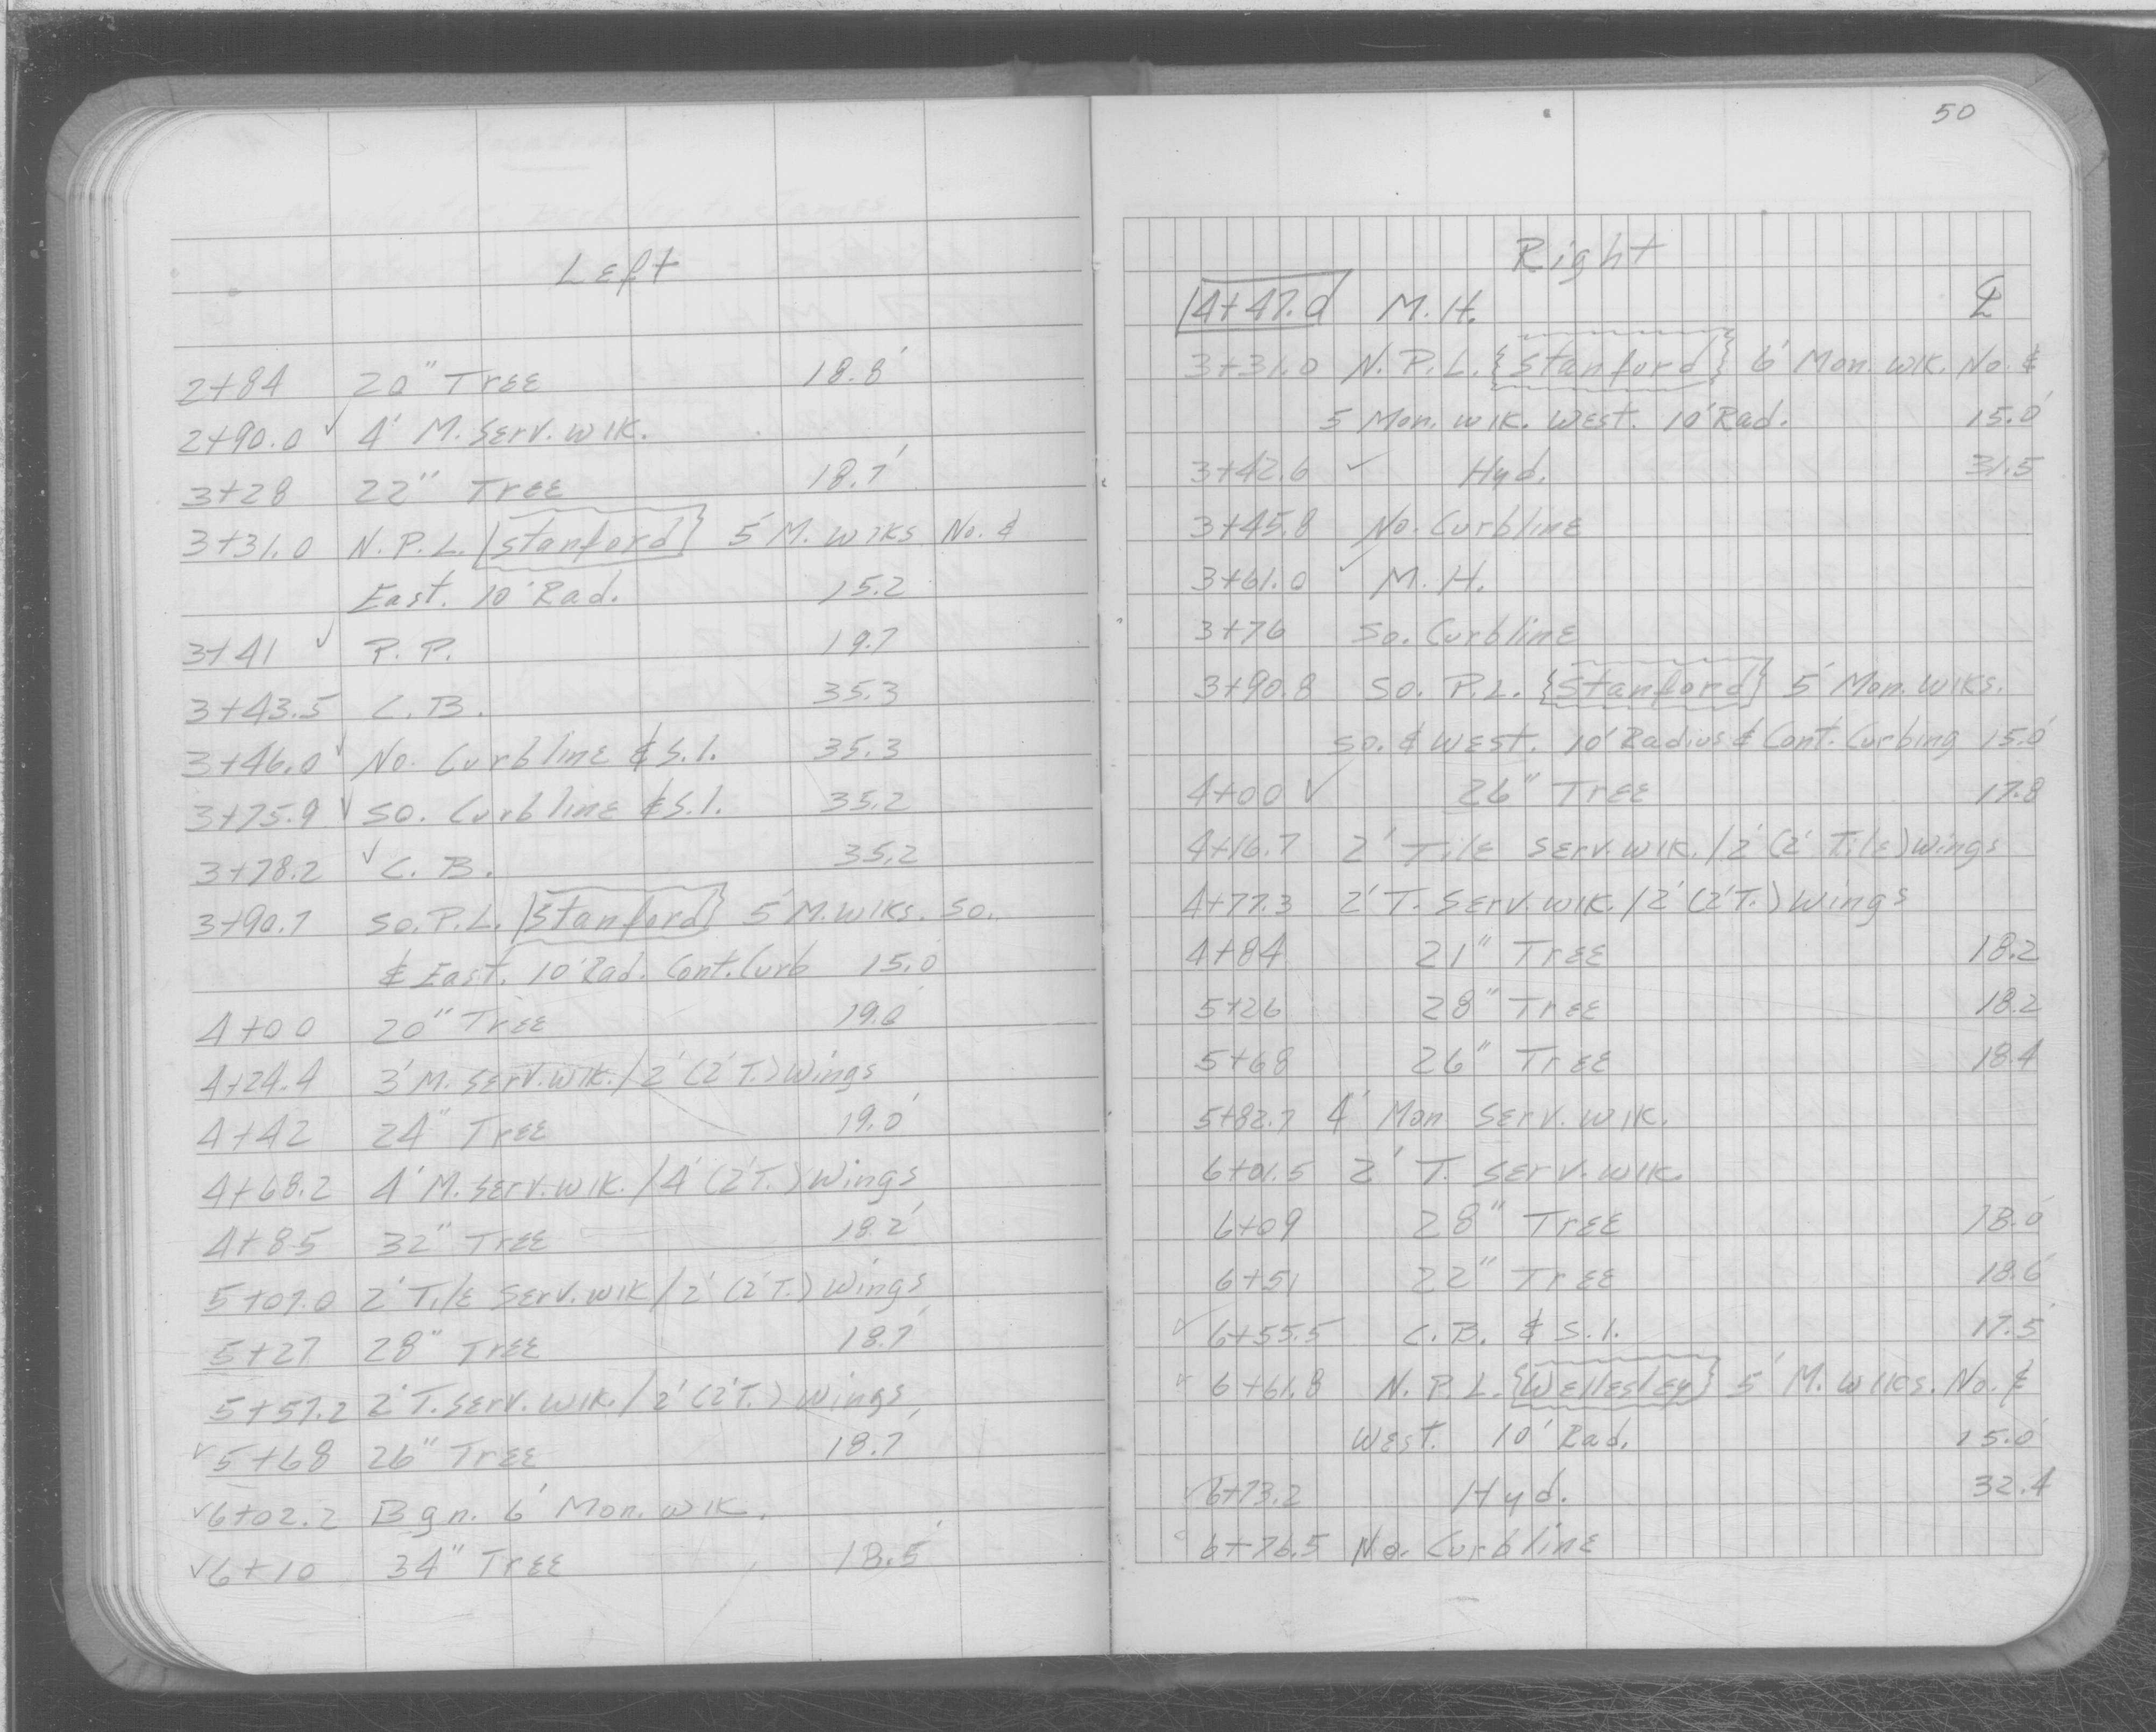 Left
2+84 20" Tree 18.8'
2+90.0 ✓ 4' M. Serv. wlk.
3+28 22" Tree 18.7'
3+31.0 N.P.L. {Stanford} 5' M. wlks No. &
East. 10' Rad. 15.2
3+41 ✓ P.P. 19.7
3+43.5 C.B. 35.3
3+46.0 ✓ No. Curbline & S.I. 35.3
3+75.9 ✓ So. Curbline & S.I. 35.2
3+78.2 ✓ C.B. 35.2
3+90.7 So. P.L. {Stanford} 5' M. wlks. So.
& East. 10' Rad. Cont. Curb 15.0'
4+00 20" Tree 19.0'
4+24.4 3' M. Serv. wlk. / 2' (2' T.) Wings
4+42 24" Tree 19.0'
4+68.2 4' M. Serv. wlk. / 4' (2' T.) Wings
4+85 32" Tree 18.2'
5+07.0 2' Tile Serv. wlk / 2' (2' T.) Wings
5+27 28" Tree 18.7'
5+57.2 2' T. Serv. wlk. / 2' (2' T.) Wings
✓ 5+68 26" Tree 18.7'
✓ 6+02.2 Bgn. 6' Mon. wlk.
✓ 6+10 34" Tree 18.5'
50
Right
4+47.0 M.H. ℄
3+31.0 N.P.L. {Stanford} 6' Mon. wlk. No. &
5' Mon. wlk. West. 10' Rad. 15.0'
3+42.6 ✓ Hyd. 31.5
3+45.8 No. Curbline
3+61.0 ✓ M.H.
3+76 So. Curbline
3+90.8 So. P.L. {Stanford} 5' Mon. wlks.
So. & West. 10' Radius & Cont. Curbing 15.0'
4+00 ✓ 26" Tree 17.8
4+16.7 2' Tile Serv. wlk. / 2' (2' Tile) Wings
4+77.3 2' T. Serv. wlk. / 2' (2' T.) Wings
4+84 21" Tree 18.2
5+26 28" Tree 18.2
5+68 26" Tree 18.4
5+82.7 4' Mon. Serv. wlk.
6+01.5 2' T. Serv. wlk.
6+09 28" Tree 18.0'
6+51 22" Tree 18.6'
✓ 6+55.5 C.B. & S.I. 17.5'
✓ 6+61.8 N.P.L. {Wellesley} 5' M. wlks. No. &
West. 10' Rad. 15.0'
✓ 6+73.2 Hyd. 32.4
6+76.5 No. Curbline